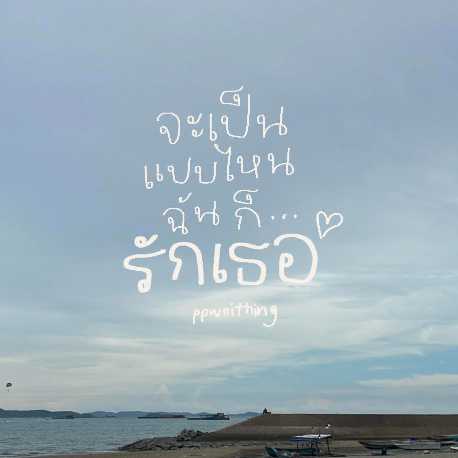 จะเป็น
แบบไหน
ฉัน ก็...
รักเธอ♡
ppwriithing